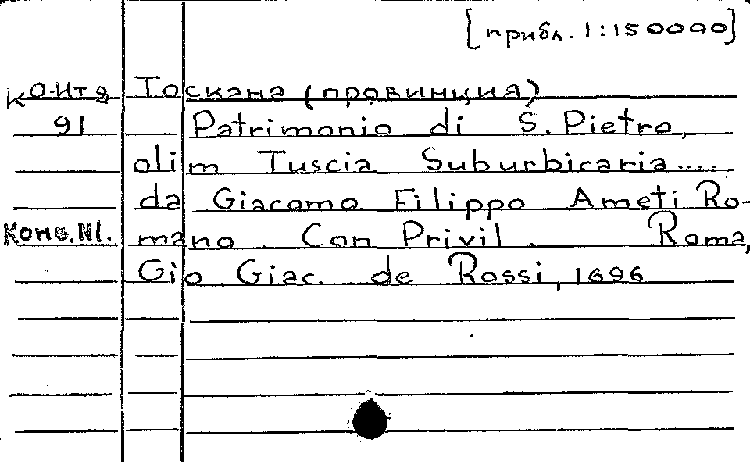 [прибл. 1:150000]
К О-Ит 2 Тоскана (провинция)
91 Patrimonio di S. Pietro,
olim Tuscia Suburbicaria....
da Giacomo Filippo Ameti Ro-
Конв. №1. mano. Con Privil. Roma,
Gio Giac. de Rossi, 1696